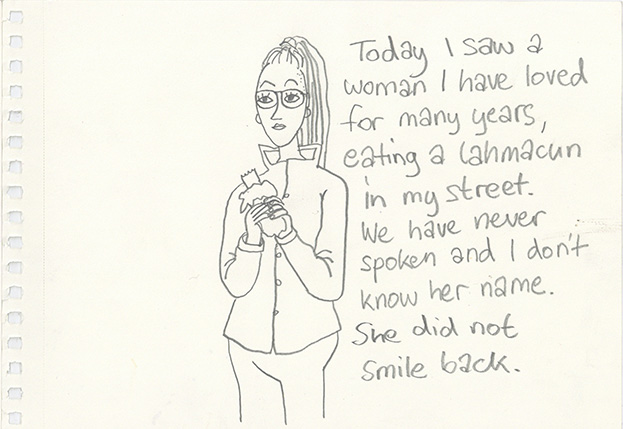 Today I saw a
woman I have loved
for many years,
eating a lahmacun
in my street.
We have never
spoken and I don't
know her name.
She did not
smile back.